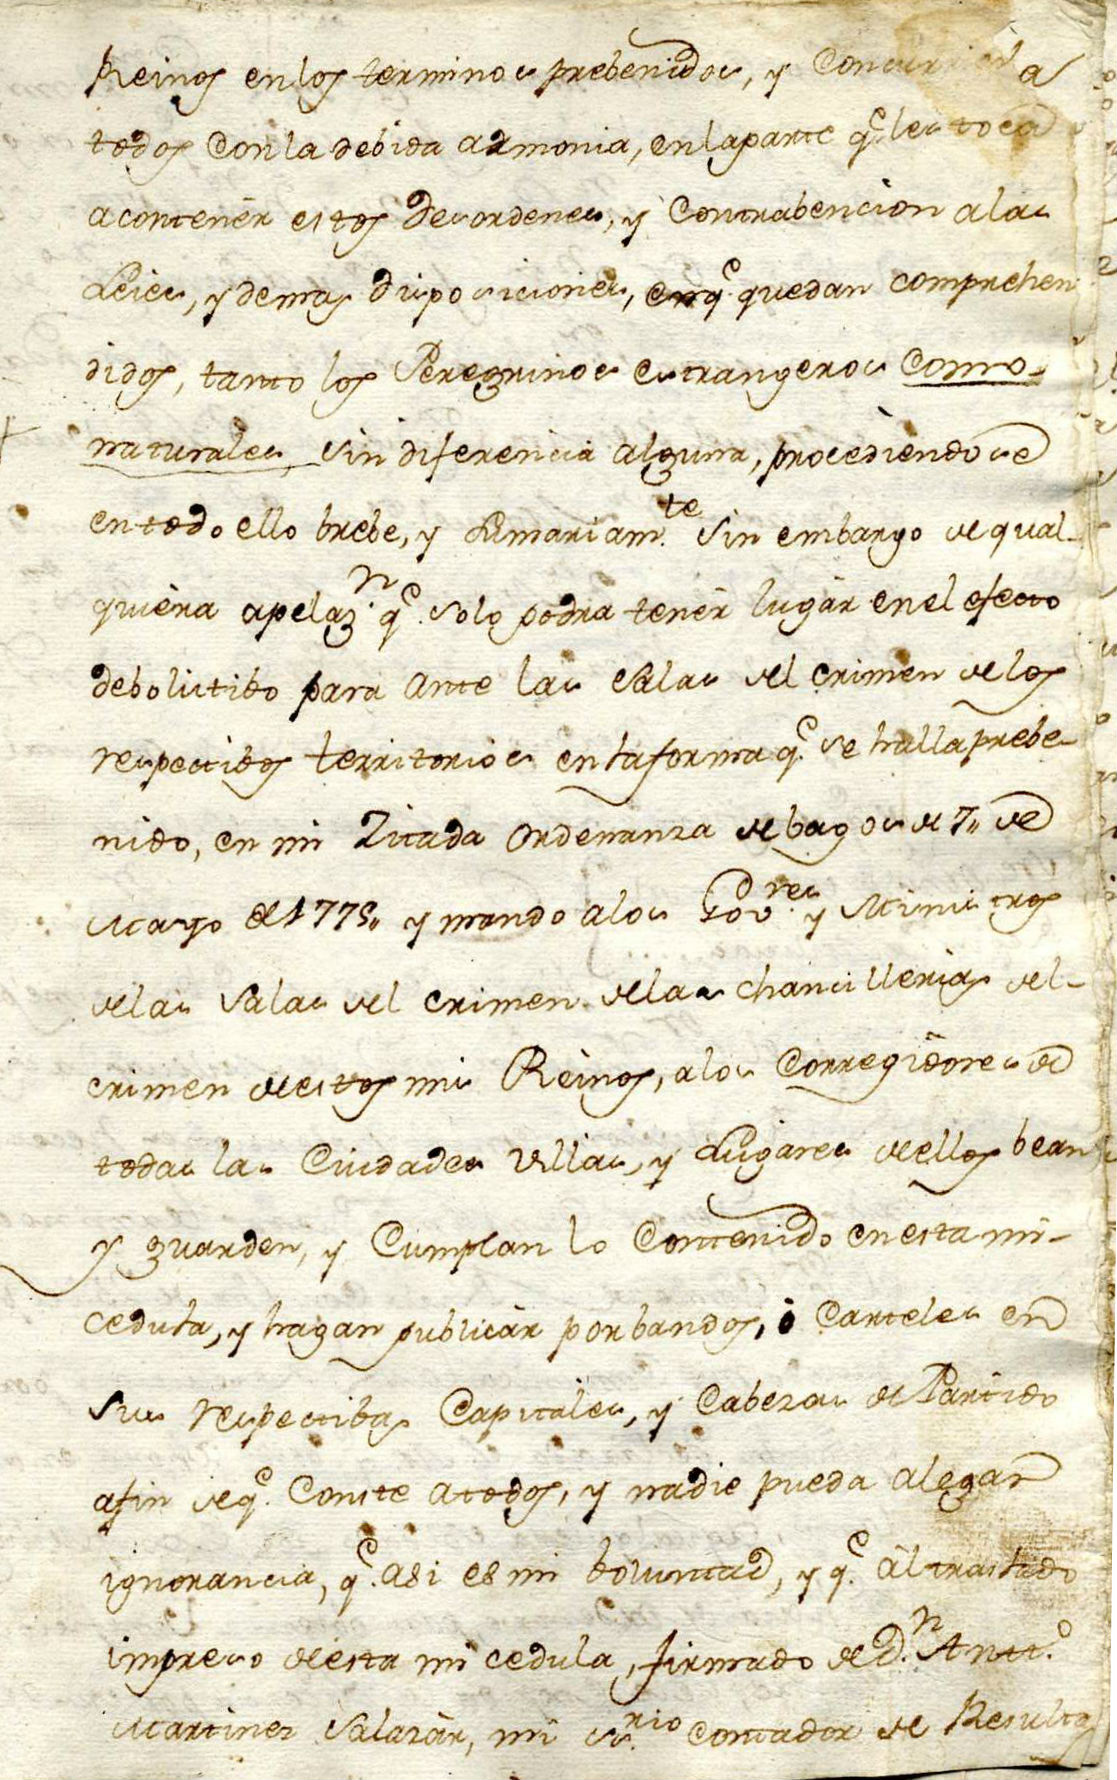 Reinos enlos terminos prebenidos, y
todos conla debida armonia, enlaparte q.e les toca
acontenér estos desordenes, y contrabencion alas
Leies, y demas disposiciones, enq.e quedan comprehen
didos, tanto los Peregrinos estrangeros como
naturales, sin diferencia alguna, procediendose
entodo ello brebe, y sumariam.te sin embargo de qual-
quièra apelaz.n q.e solo podra tenér lugár enel efecto
debolutibo para ante las salas del crimen delos
respectibos territorios enlaforma q.e se hallaprebe-
nido, en mi Zitada ordenanza debagos de 7,, de
Mayo de1775,, y mando alos Gov.res y Ministros
delas salas del crimen delas chancillerias del-
crimen deestos mis Reinos, alos Corregidores de
todas las Ciudades Villas, y Lugares deellos bean
y guarden, y Cumplan lo Contenido enesta mi-
cedula, y hagan publicár porbandos, ò carteles en
sus respectibas Capitales, y Cabezas de Partido
afin deq.e Conste atodos, y nadie pueda alegar
ignorancia, q.e asi es mi boluntad, y q.e àltraslado
impreso deesta mi cedula, firmado de D.n Antt.o
Martinez Salazàr, mi ss.rio contador de Resultas